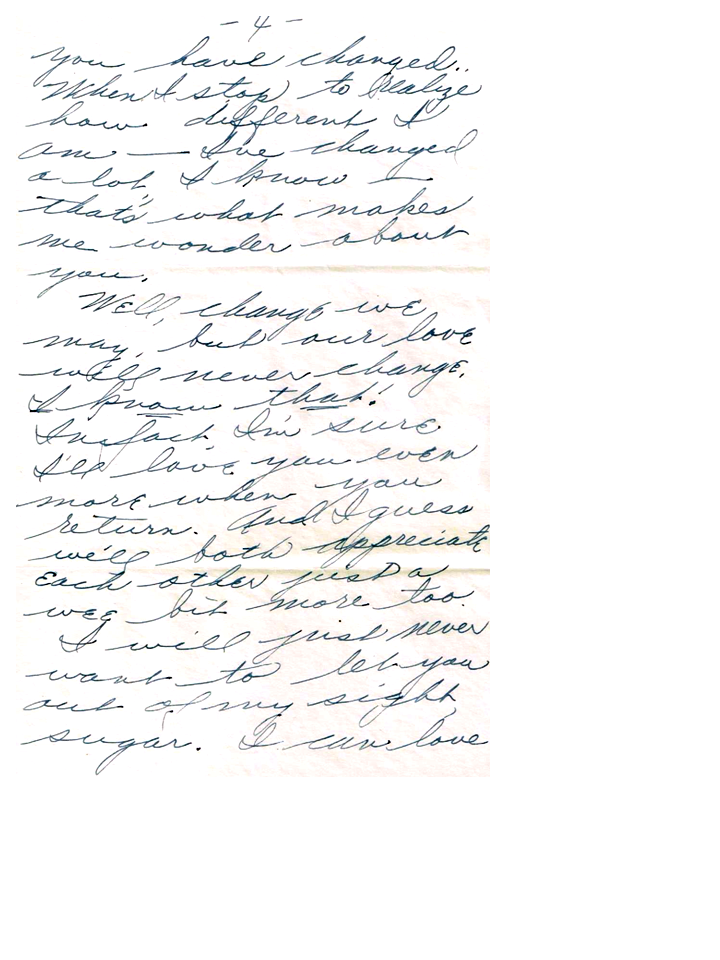 - 4 -
you have changed..
When I stop to realize
how different I
am — I've changed
a lot, I know —
that's what makes
me wonder about
you.
Well, change we
may, but our love
will never change.
I know that!
In fact, I'm sure
I'll love you even
more when you
return. And I guess
we'll both appreciate
each other just a
wee bit more too.
I will just never
want to let you
out of my sight,
sugar. I can love